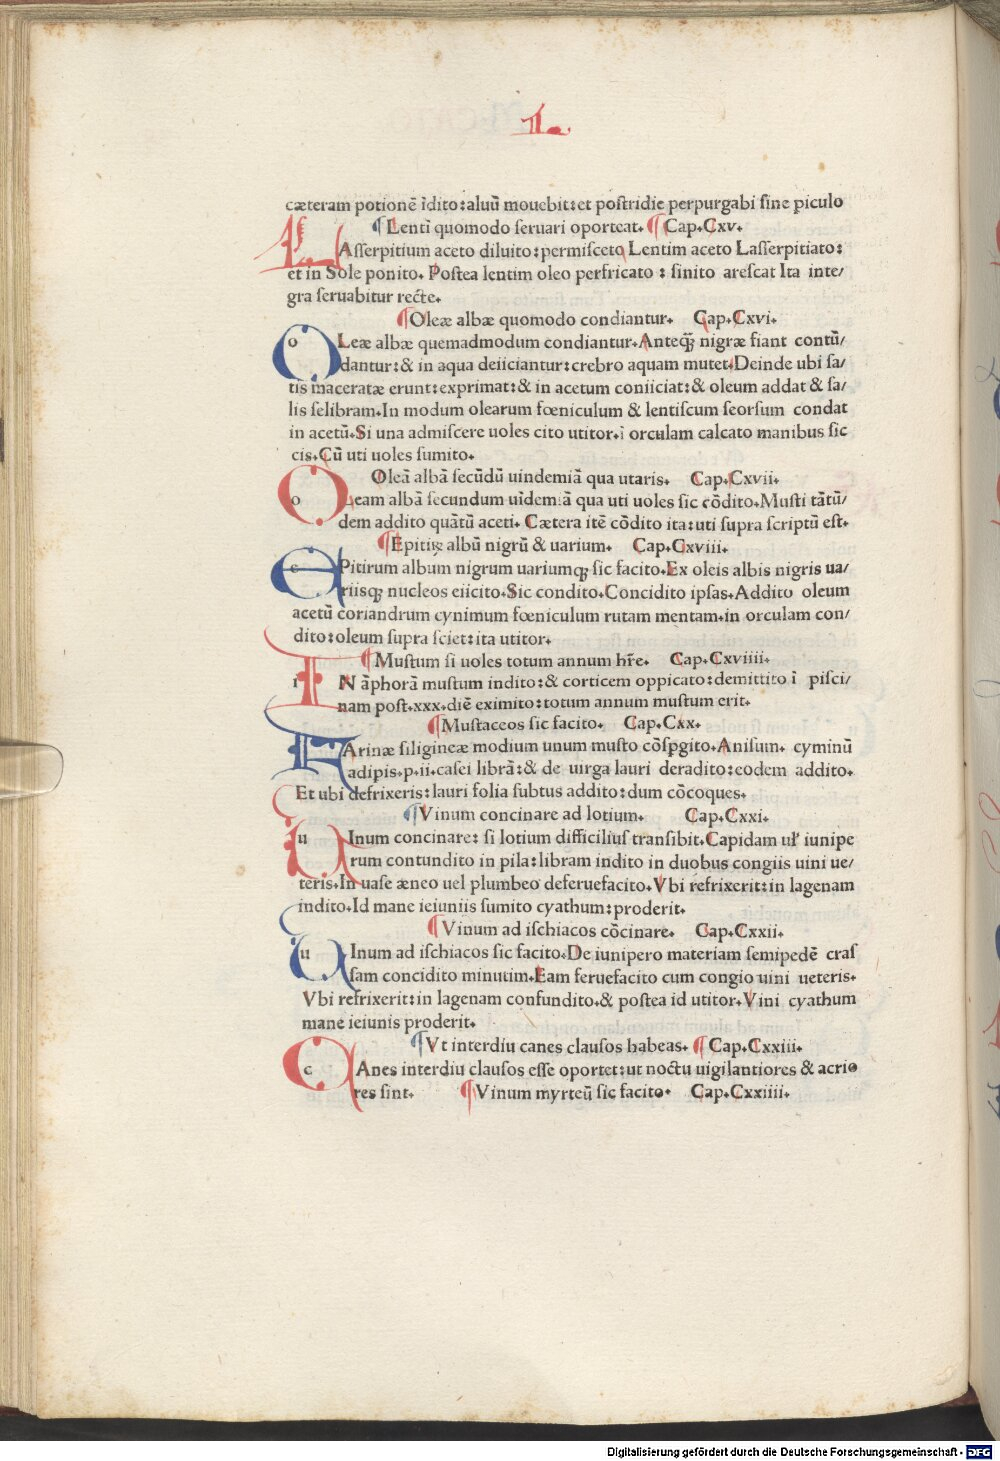 L.
cæteram potionē īdito:aluū mouebit:et postridie perpurgabi sine piculo
¶Lentī quomodo seruari oporteat. ¶ Cap.Cxv.
LAsserpitium aceto diluito:permisceto Lentim aceto Lasserpitiato:
et in Sole ponito. Postea lentim oleo perfricato : sinito arescat Ita inte/
gra seruabitur recte.
¶Oleæ albæ quomodo condiantur. Cap.Cxvi.
OLeæ albæ quemadmodum condiantur.Anteqȝ nigræ fiant contū/
dantur:& in aqua deiiciantur:crebro aquam mutet.Deinde ubi sa/
tis maceratæ erunt:exprimat:& in acetum coniiciat:& oleum addat & sa/
lis selibram.In modum olearum fœniculum & lentiscum seorsum condat
in acetū.Si una admiscere uoles cito utitor.ī orculam calcato manibus sic
cis.Cū uti uoles sumito.
Oleā albā secūdū uindemiā qua utaris. Cap.Cxvii.
OLeam albā secundum uīdemiā qua uti uoles sic cōdito.Musti tātū/
dem addito quātū aceti. Cætera itē cōdito ita:uti supra scriptū est.
¶Epitiꝝ albū nigrū & uarium. Cap.Cxviii.
EPitirum album nigrum uariumqȝ sic facito.Ex oleis albis nigris ua/
riisqȝ nucleos eiicito.Sic condito.Concidito ipsas.Addito oleum
acetū coriandrum cynimum fœniculum rutam mentam.in orculam con/
dito:oleum supra sciet:ita utitor.
¶Mustum si uoles totum annum hr̄e. Cap.Cxviiii.
IN āphorā mustum indito:& corticem oppicato:demittito ī pisci/
nam post.xxx.diē eximito:totum annum mustum erit.
¶Mustaceos sic facito. Cap.Cxx.
FArinæ siligineæ modium unum musto cōspgito.Anisum. cyminū
adipis.p.ii.casei librā:& de uirga lauri deradito:eodem addito.
Et ubi defrixeris:lauri folia subtus addito:dum cōcoques.
¶Vinum concinare ad lotium. Cap.Cxxi.
UInum concinare: si lotium difficilius transibit.Capidam uł iunipe
rum contundito in pila:libram indito in duobus congiis uini ue/
teris.In uase æneo uel plumbeo deferuefacito.Vbi refrixerit:in lagenam
indito.Id mane ieiuniis sumito cyathum:proderit.
¶Vinum ad ischiacos cōcinare. Cap.Cxxii.
UInum ad ischiacos sic facito.De iunipero materiam semipedē cras
sam concidito minutim.Eam feruefacito cum congio uini ueteris.
Vbi refrixerit:in lagenam confundito.& postea id utitor.Vini cyathum
mane ieiunis proderit.
¶Vt interdiu canes clausos habeas. ¶ Cap.Cxxiii.
CAnes interdiu clausos esse oportet:ut noctu uigilantiores & acrio
res sint. ¶Vinum myrteū sic facito. Cap.Cxxiiii.
Digitalisierung gefördert durch die Deutsche Forschungsgemeinschaft - DFG